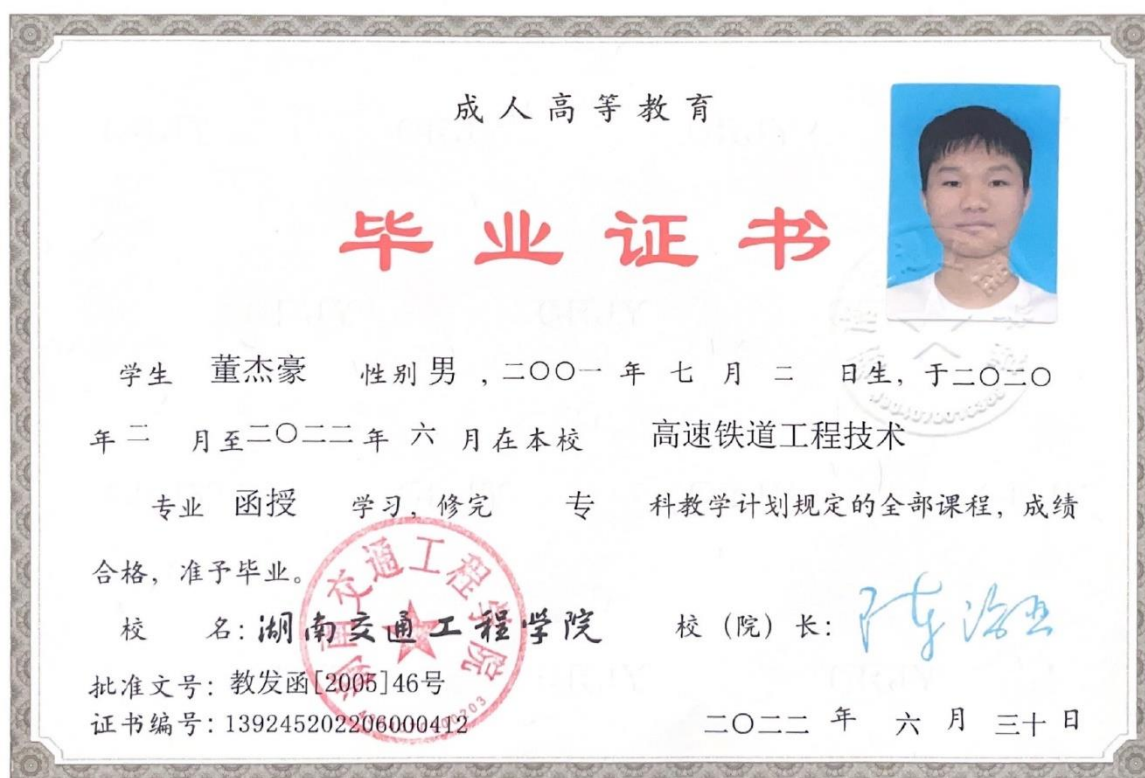 成人高等教育
毕业证书
学生 董杰豪 性别 男 ，二〇〇一 年 七 月 二 日生，于二〇二〇
年 二 月至二〇二二年 六 月在本校 高速铁道工程技术
专业 函授 学习，修完 专 科教学计划规定的全部课程，成绩
合格，准予毕业。
校 名：湖南交通工程学院 校（院）长：
批准文号：教发函[2005]46号
证书编号：139245202206000412
二〇二二 年 六 月 三十 日
湖南交通工程学院